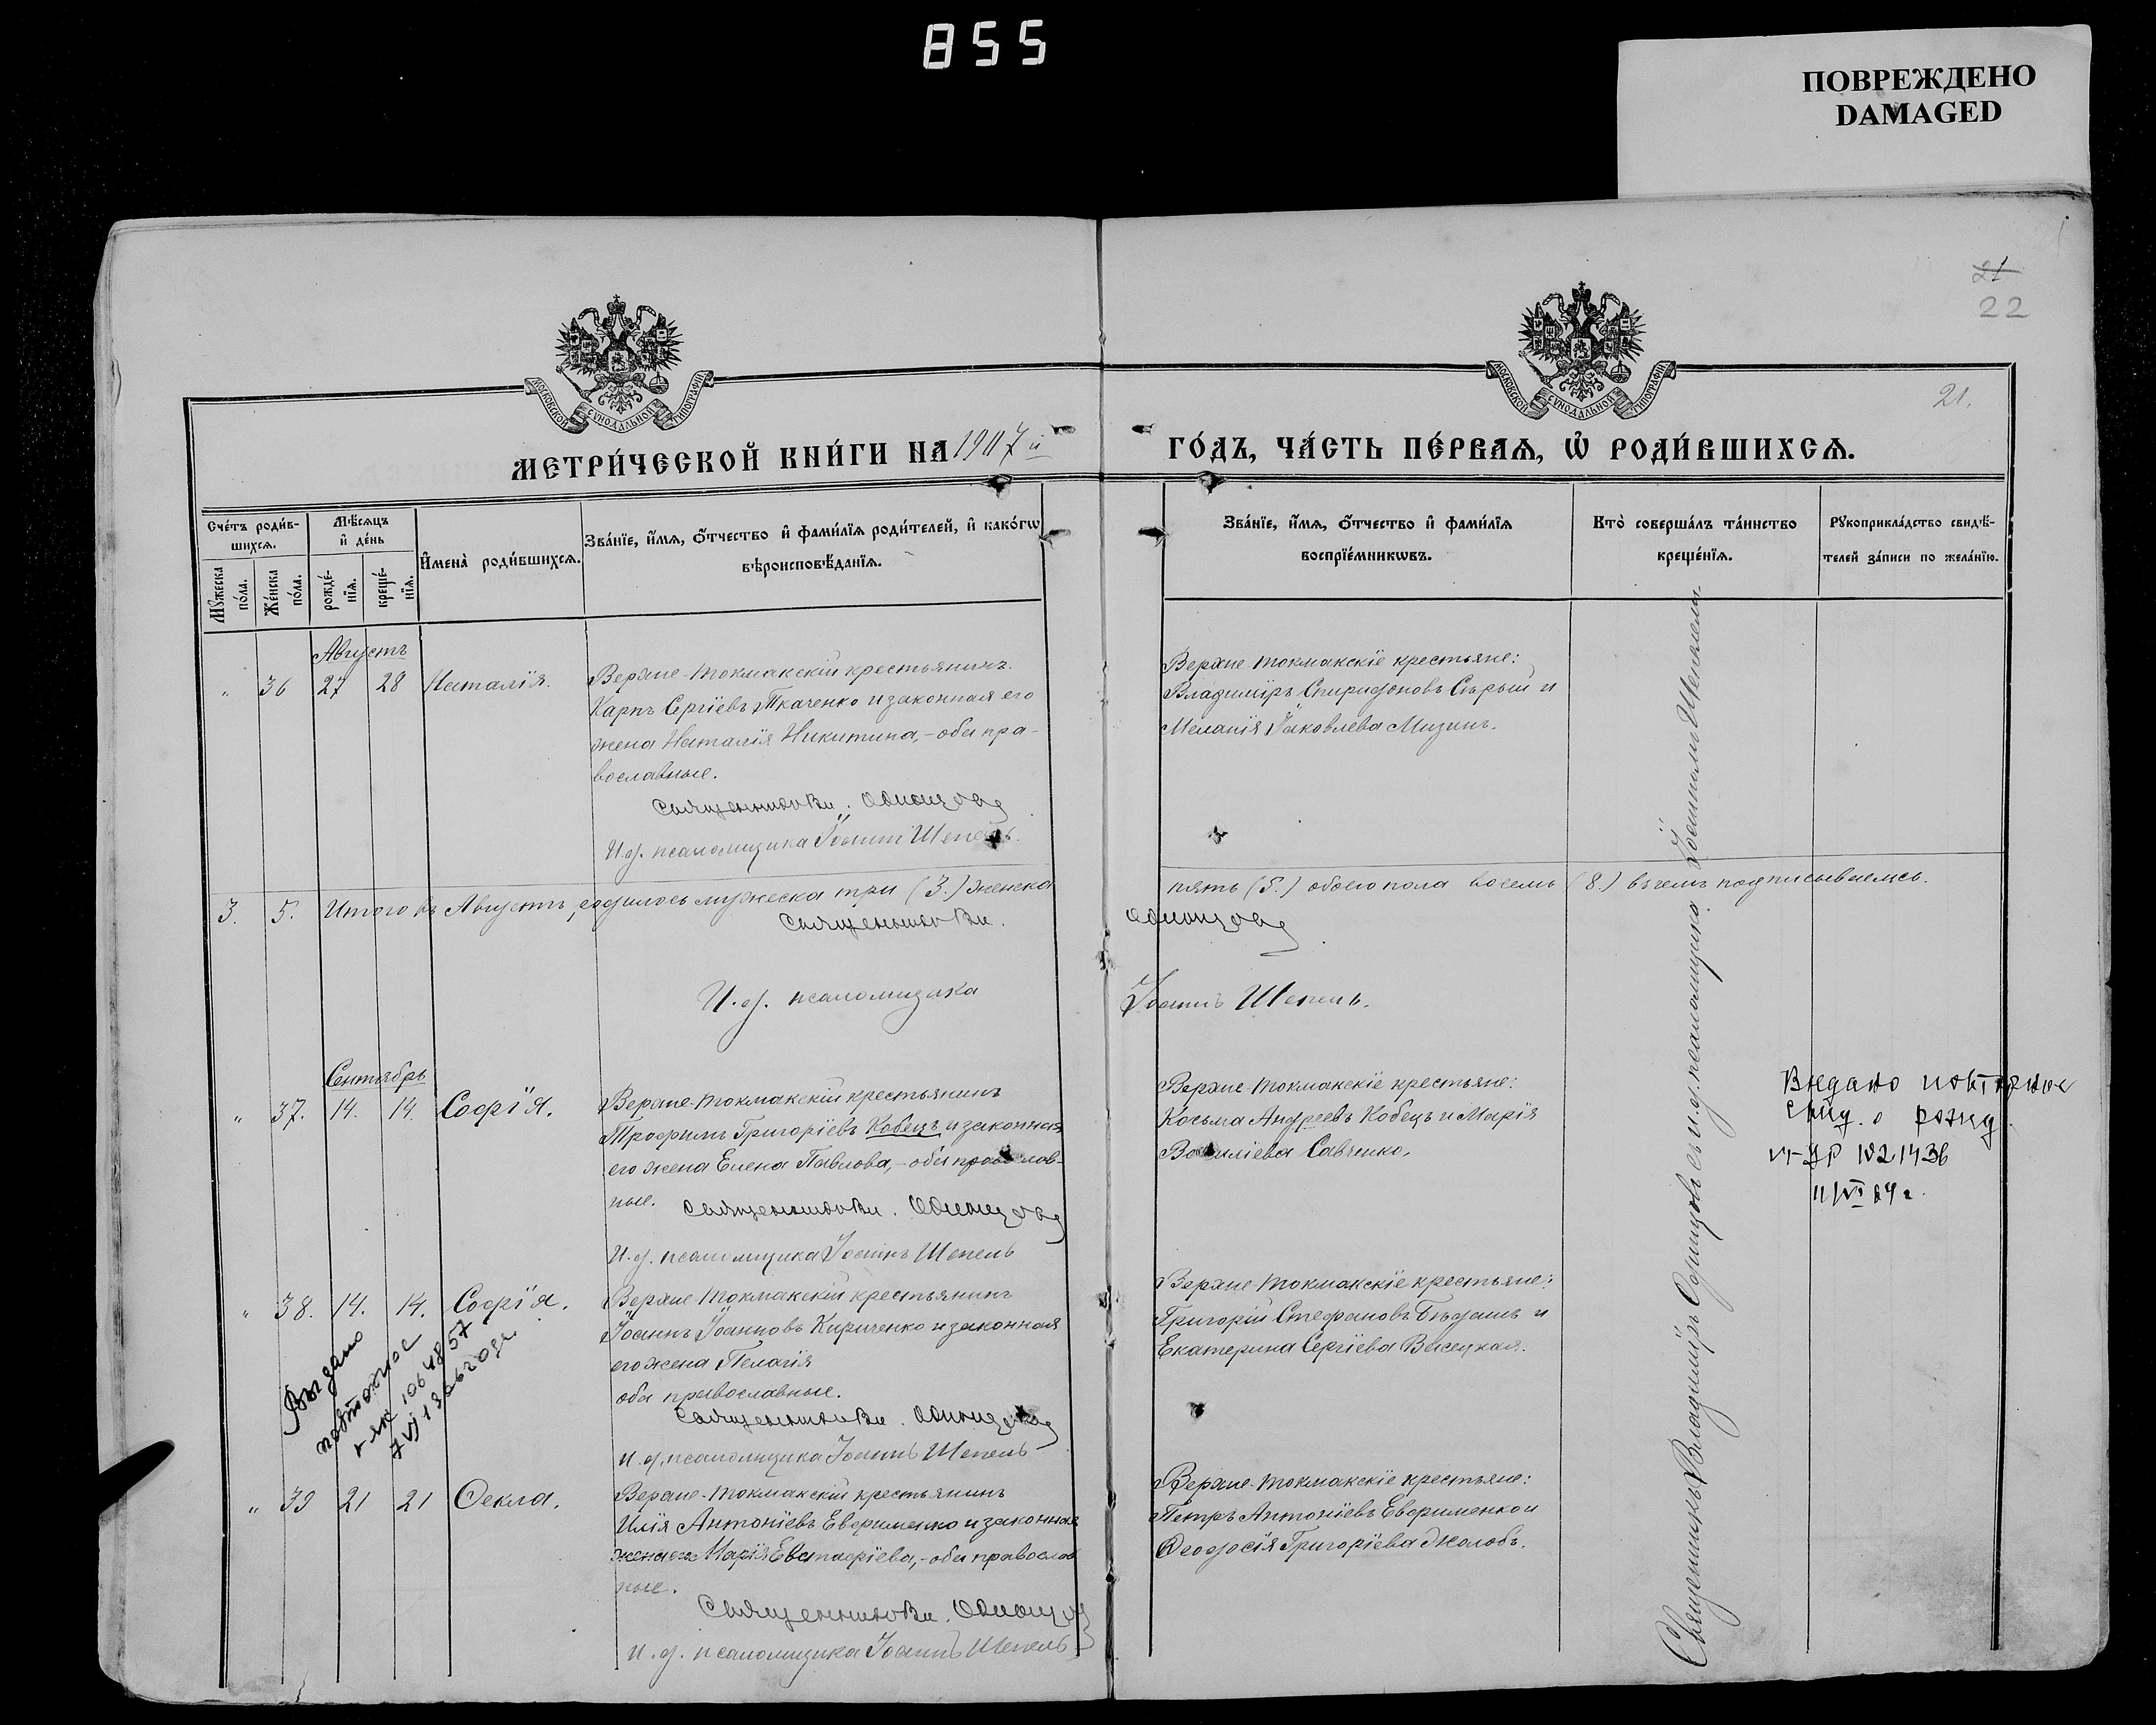 855
ПОВРЕЖДЕНО
DAMAGED
21
22
21.
МОСКОВСКОЙ СѴНОДАЛЬНОЙ ТИПОГРАФІИ
МОСКОВСКОЙ СѴНОДАЛЬНОЙ ТИПОГРАФІИ
МЕТРИ́ЧЕСКОЙ КНИ́ГИ НА 1907 й
ГО́ДЪ, ЧА́СТЬ ПЕ́РВАѦ, Ѡ҆ РОДИ́ВШИХСѦ.
Сче́тъ роди́в-
шихсѧ.
Мꙋжеска
по́ла.
Же́нска
по́ла.
Мѣ́сѧцъ
и҆ де́нь
рожде́-
нїѧ.
креще́-
нїѧ.
И҆мена̀ роди́вшихсѧ.
Зва́нїе, и҆́мѧ, ѻ҆́тчество и҆ фами́лїѧ роди́телей, и҆ како́гѡ
вѣроисповѣ́данїѧ.
Зва́нїе, и҆́мѧ, ѻ҆́тчество и҆ фами́лїѧ
воспрїе́мникѡвъ.
Кто̀ соверша́лъ та́инство
креще́нїѧ.
Рꙋкоприкла́дство свидѣ́-
телей за́писи по жела́нїю.
Августъ
" 36 27 28 Наталія.
Верхне-Токмакскій крестьянинъ
Карпъ Сергіевъ Ткаченко и законная его
жена Наталія Никитина, - оба пра-
вославные.
Священникъ Вл. Одинцовъ
И. д. псаломщика Іоаннъ Шепель.
Верхне-Токмакскіе крестьяне:
Владиміръ Спиридоновъ Сѣрый и
Меланія Іаковлева Мизинъ.
3. 5. Итого въ Августѣ родилось мужеска три (3.) женска
пять (5.) обоего пола восемь (8.) въ чемъ подписываемся.
Священникъ Вл. Одинцовъ
И. д. псаломщика Іоаннъ Шепель.
Сентябрь
" 37. 14. 14. Софія.
Верхне-Токмакскій крестьянинъ
Трофимъ Григоріевъ Кобецъ и законная
его жена Елена Павлова, - оба православ-
ные.
Священникъ Вл. Одинцовъ
И. д. псаломщика Іоаннъ Шепель
Верхне-Токмакскіе крестьяне:
Косьма Андреевъ Кобецъ и Марія
Василіева Савченко.
Видано повторное
свид. о рожд.
VI-ЯР №21436
11/VI 84 г.
" 38. 14. 14. Софія.
Верхне Токмакскій крестьянинъ
Іоаннъ Іоанновъ Кириченко и законная
его жена Пелагія
оба православные.
Священникъ Вл. Одинцовъ
И. д. псаломщика Іоаннъ Шепель
Верхне-Токмакскіе крестьяне:
Григорій Стефановъ и
Екатерина Сергіева Высецкая.
Выдано
повторное
" 39 21 21 Ѳекла.
Верхне-Токмакскій крестьянинъ
Илія Антоніевъ Евфименко и законная
жена его Марія Евстафіева, - оба православ
ные.
Священникъ Вл. Одинцовъ
И. д. псаломщика Іоаннъ Шепель
Верхне-Токмакскіе крестьяне:
Петръ Антоніевъ Евфименко и
Ѳеодосія Григоріева Жолобъ.
Священникъ Владиміръ Одинцовъ съ и. д. псаломщика Іоанномъ Шепелемъ